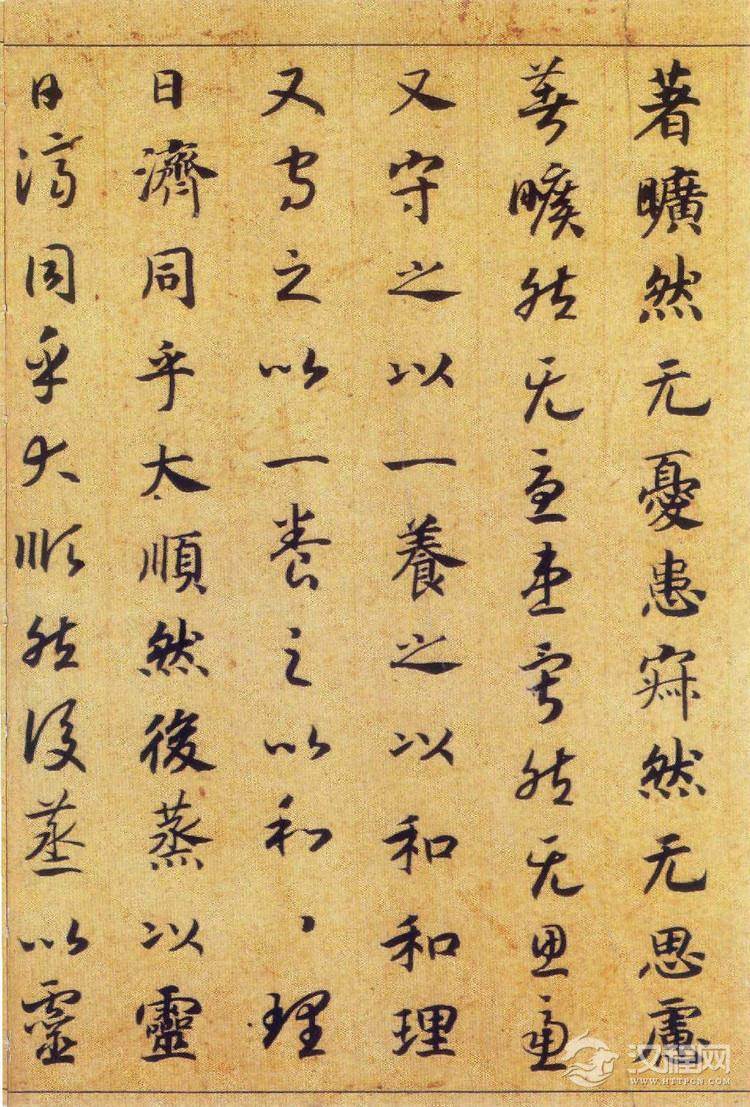 著曠然无憂患寂然无思慮
著曠然无憂患寂然无思慮
又守之以一養之以和和理
又守之以一養之以和〻理
日濟同乎大順然後蒸以靈
日濟同乎大順然後蒸以靈
汉程网
WWW.HTTPCN.COM